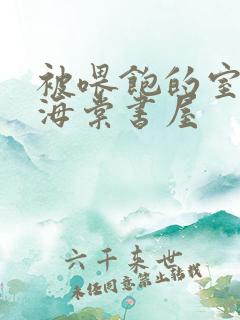 被喂饱的室
海棠书屋
六千来世
未经同意禁止转载